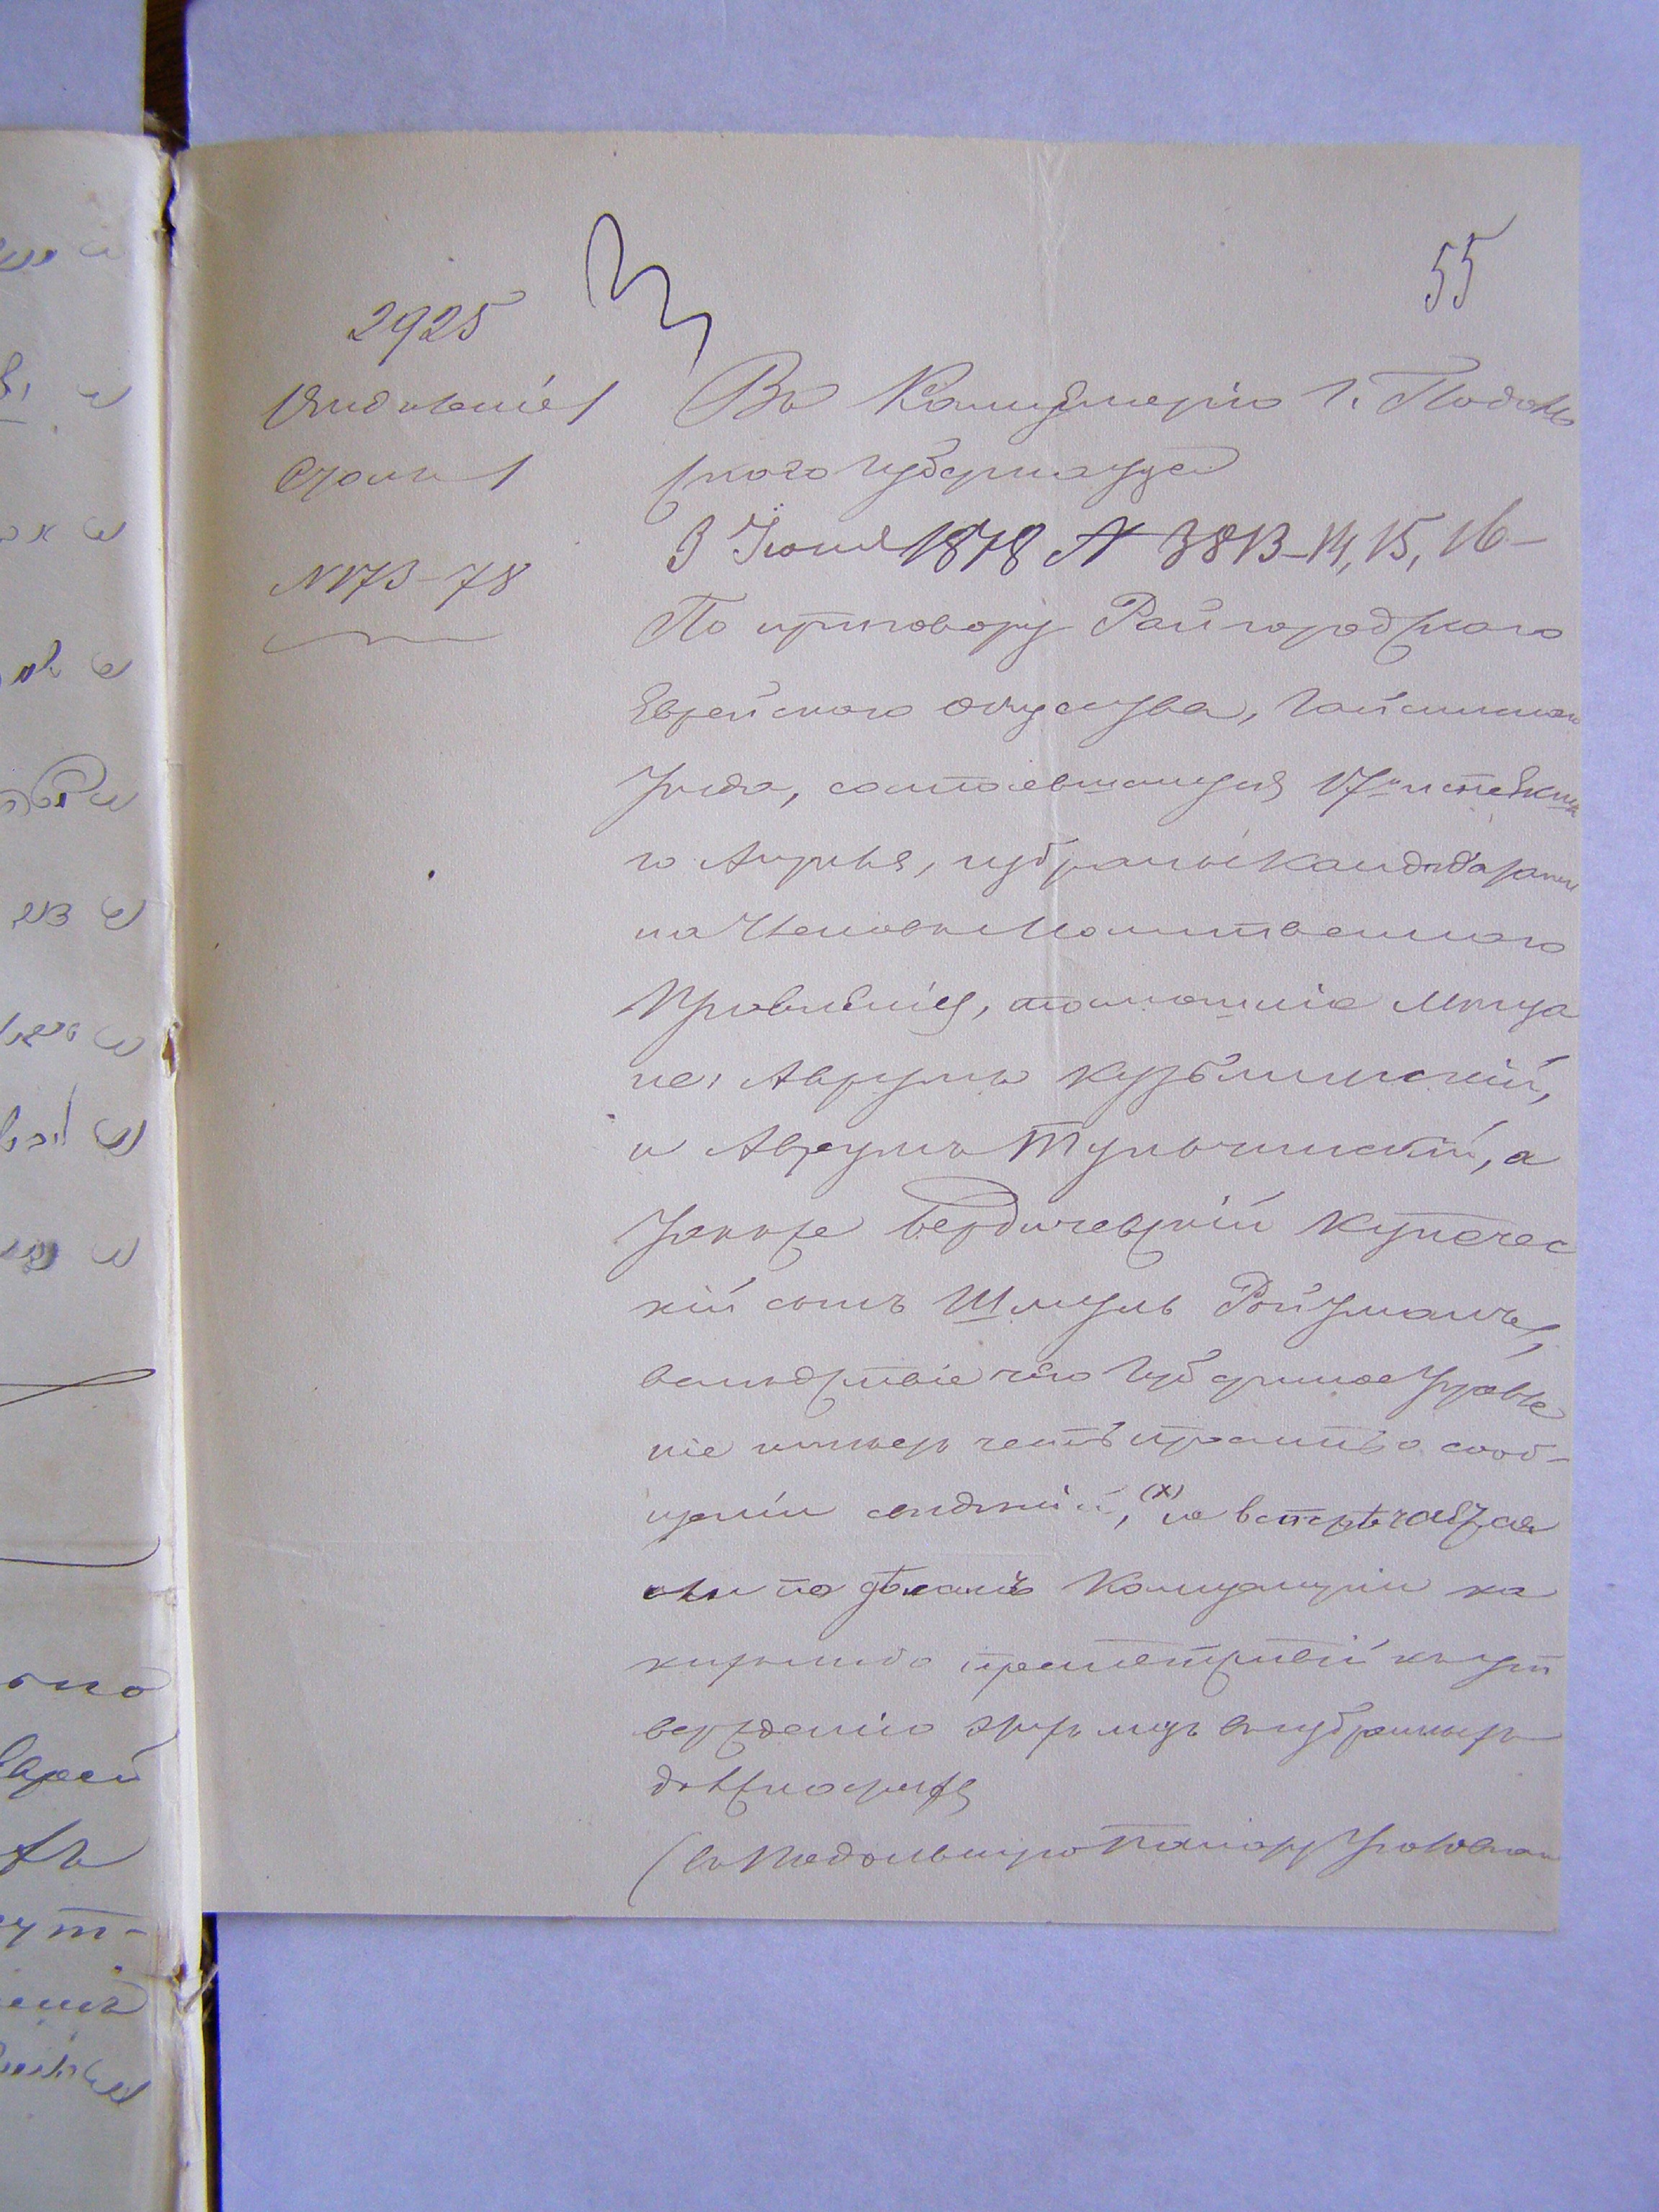 55
2925
Отдѣленіе 1
Столъ 1
№ 173-78
Въ Канцелярію Г. Подоль
скаго Губернатора
3 Іюня 1878 № 3813-14, 15, 16-
По приговору Райгородскаго
Еврейскаго общества, Гайсинскаго
уѣзда, состоявшемуся 17 истекша
го Апрѣля, избраны кандидатами
на Членовъ Молитвеннаго
Правленія, тамошніе мѣща
не: Аврумъ Кузьминскій,
и Аврумъ Тульчинскій, а
также Бердичевскій купечес
кій сынъ Шмуль Ройзманъ,
вслѣдствіе чего Губернское Правле
ніе имѣетъ честь просить о сооб-
щеніи свѣдѣній, (х) не встрѣчается
ли по дѣламъ Канцеляріи ка
кихъ либо препятствій къ ут
вержденію этихъ лицъ въ избранныхъ
должностяхъ
(въ Подольскую